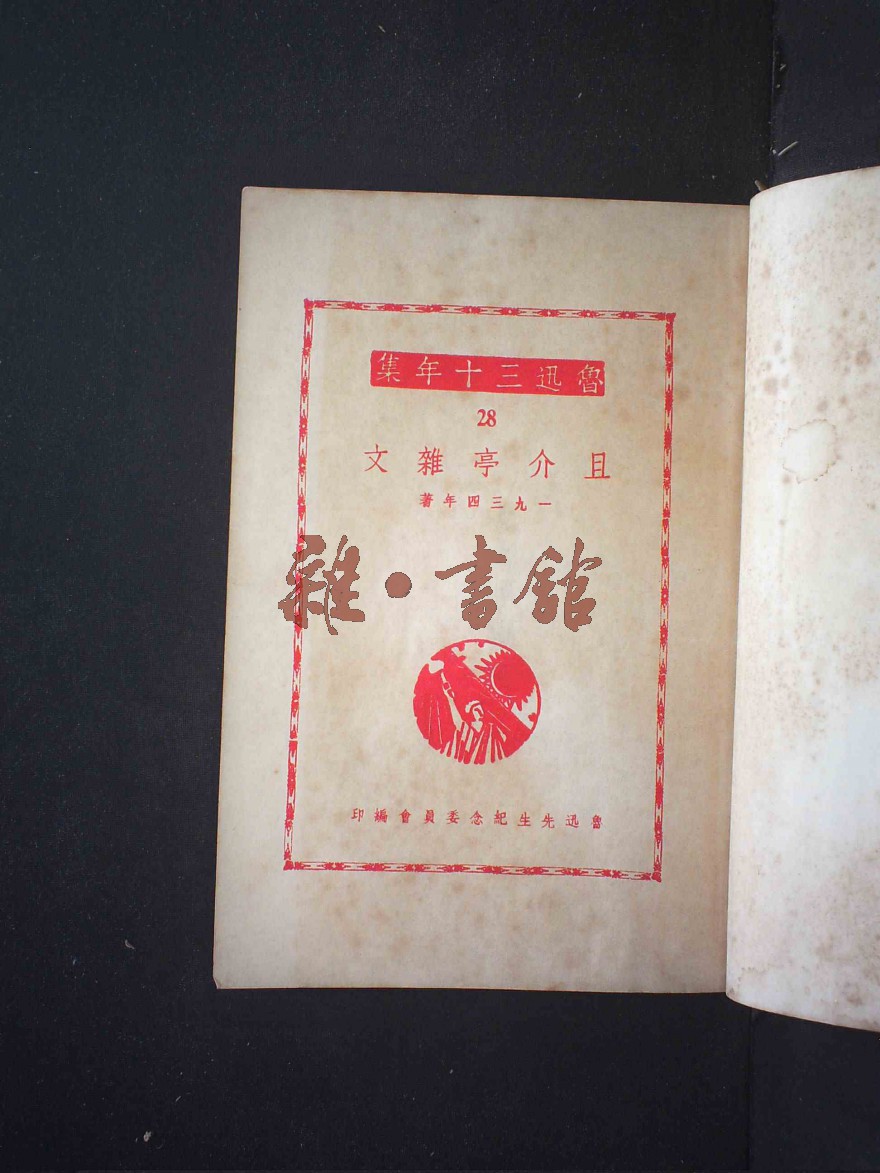 魯迅三十年集
28
且介亭雜文
一九三四年著
雜·書館
魯迅先生紀念委員會編印